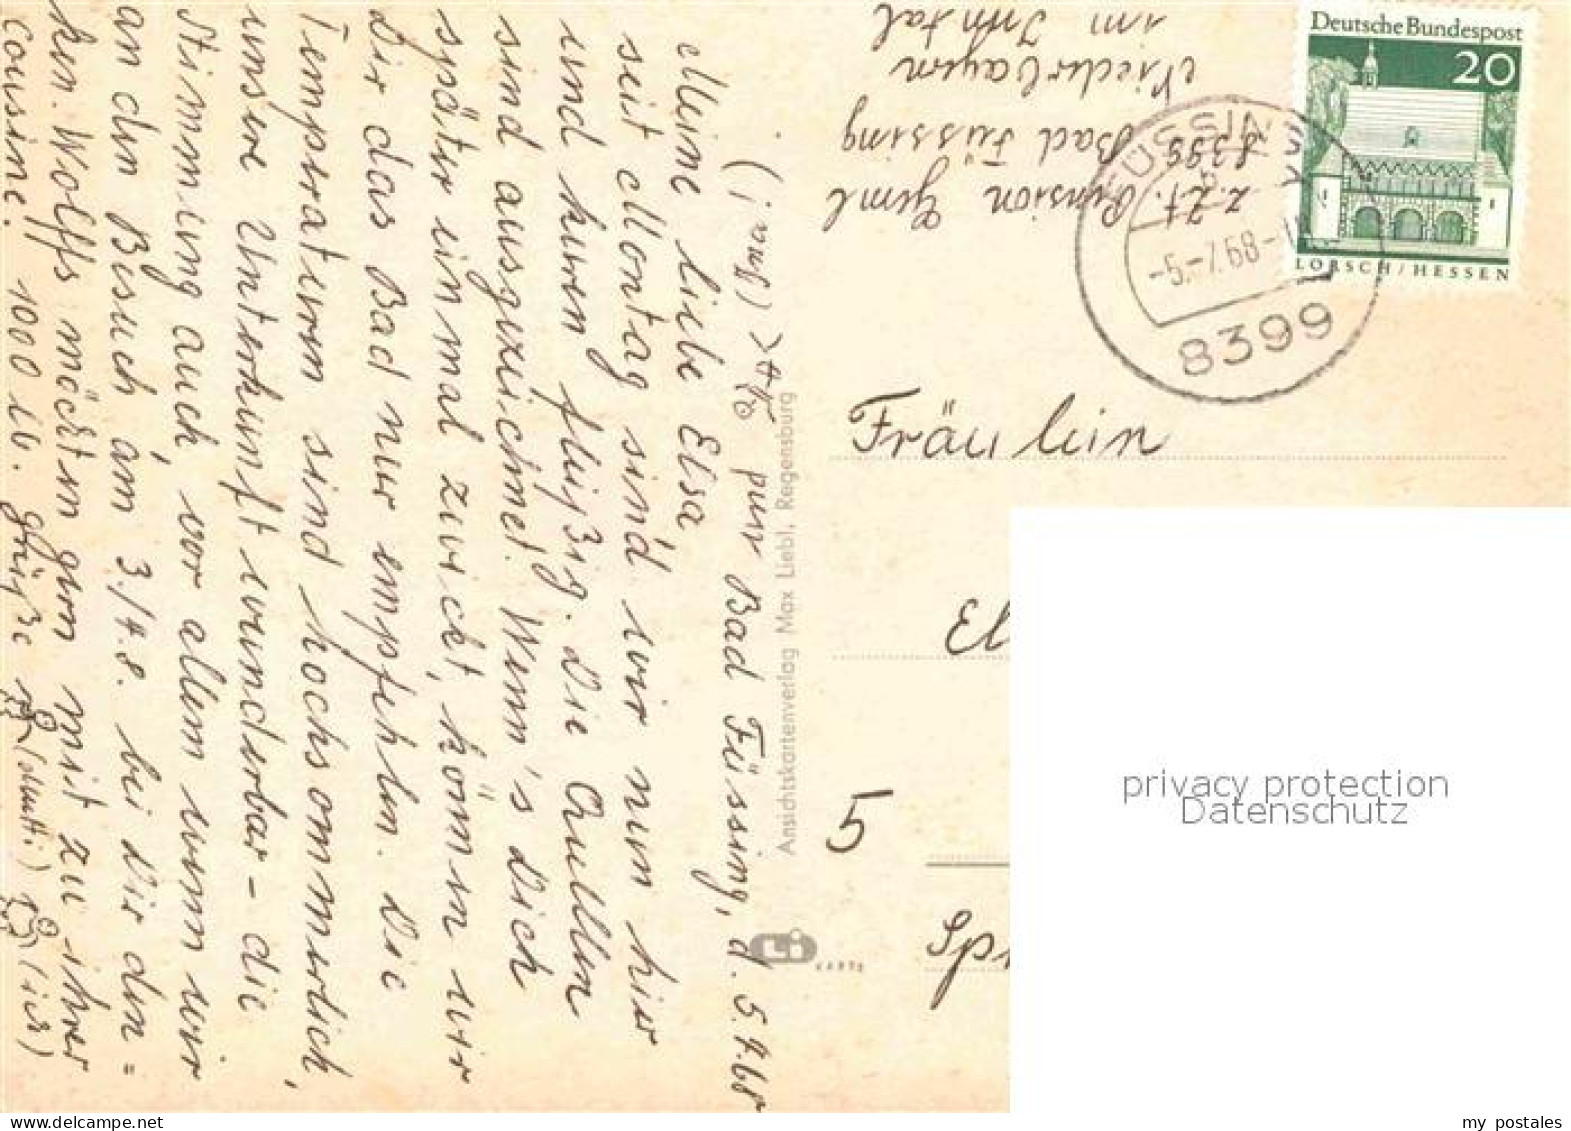 Deutsche Bundespost
20
LORSCH/HESSEN
FÜSSIN
-5.-7.68-1
8399
z. Zt. Pension Geml
8399 Bad Füssing
Niederbayern
im Inntal
Fräulein
El
5
Sp
Ansichtskartenverlag Max Liebl, Regensburg
KARTE
pur Bad Füssing, d. 5.7.68
Meine liebe Elsa,
seit Montag sind wir nun hier
und kuren fleißig. Die Quellen
sind ausgezeichnet. Wenn's Dich
später einmal zwickt, können wir
Dir das Bad nur empfehlen. Die
Temperaturen sind hochsommerlich,
unsere Unterkunft wunderbar - die
Stimmung auch, vor allem wenn wir
an den Besuch am 3./4.8. bei Dir den=
ken. Wolffs möchten gern mit zu ihrer
Cousine. 1000 lb. Grüße
privacy protection
Datenschutz
my_postales
www.delcampe.net